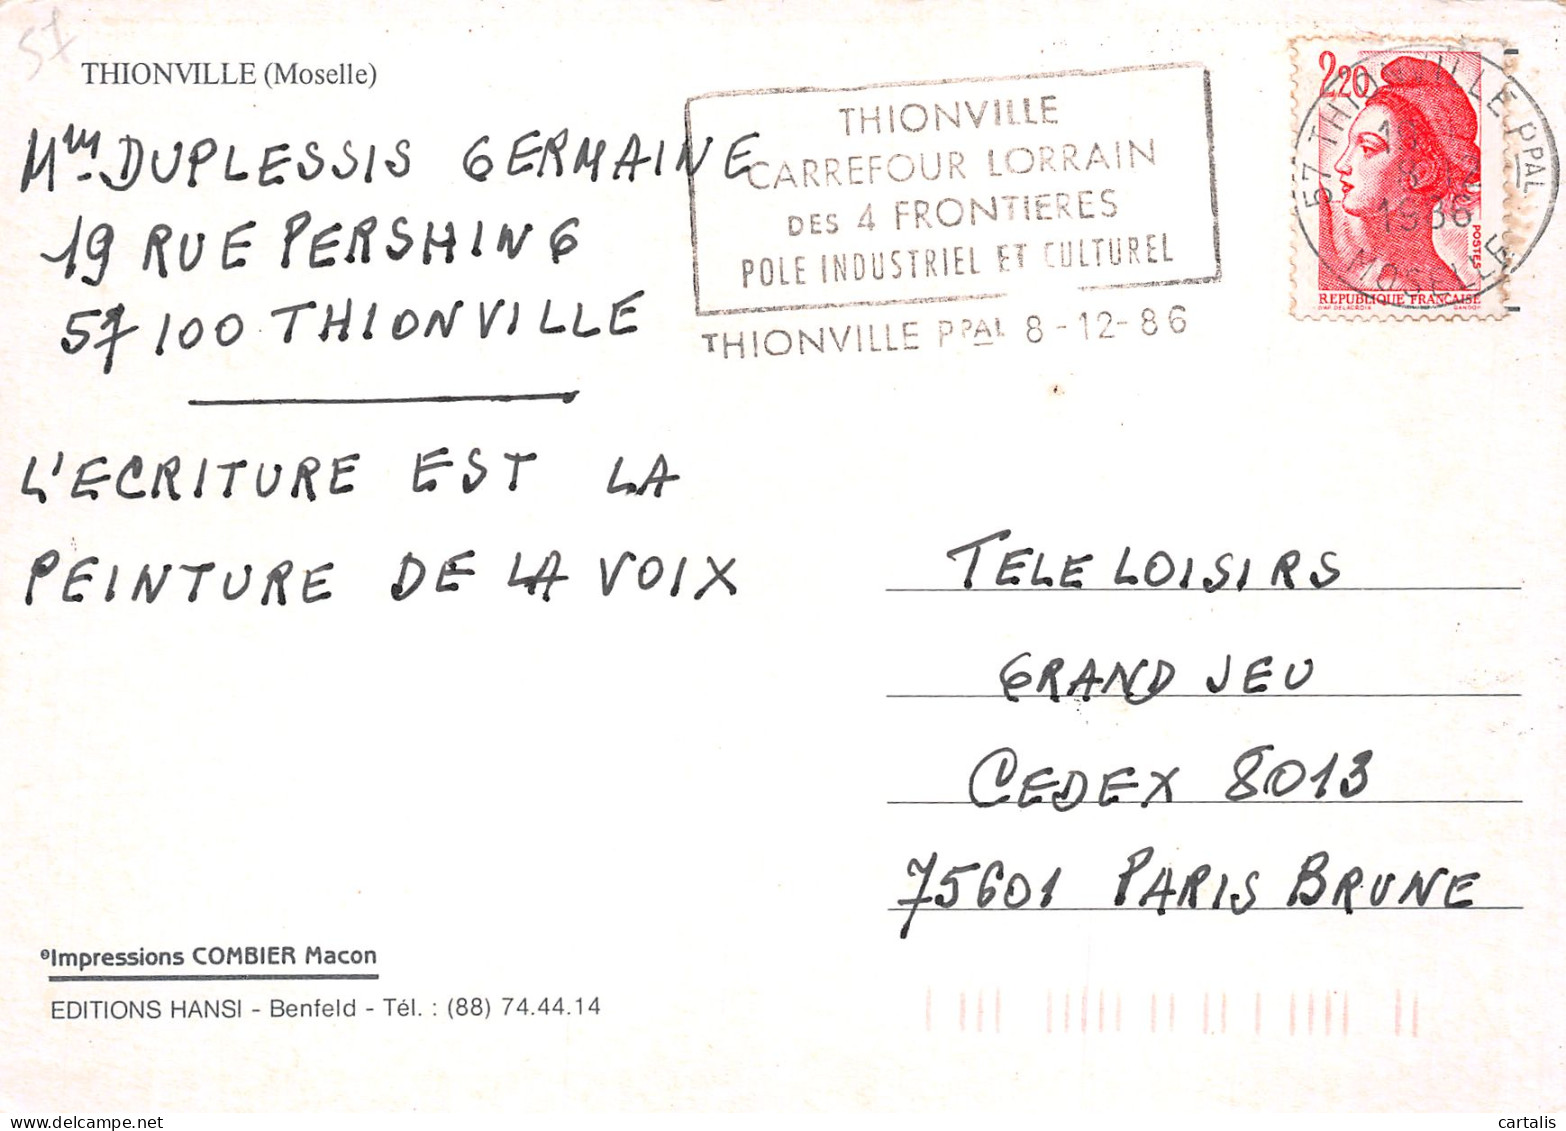 57
THIONVILLE (Moselle)
Mme DUPLESSIS GERMAINE
19 RUE PERSHING
57100 THIONVILLE
L'ECRITURE EST LA
PEINTURE DE LA VOIX
THIONVILLE
CARREFOUR LORRAIN
DES 4 FRONTIERES
POLE INDUSTRIEL ET CULTUREL
THIONVILLE PPAL 8-12-86
2,20
POSTES
REPUBLIQUE FRANÇAISE
DAP. DELACROIX GANDON
57 THIONVILLE PPAL
1986
MOSELLE
TELE LOISIRS
GRAND JEU
CEDEX 8013
75601 PARIS BRUNE
Impressions COMBIER Macon
EDITIONS HANSI - Benfeld - Tél. : (88) 74.44.14
www.delcampe.net
cartalis